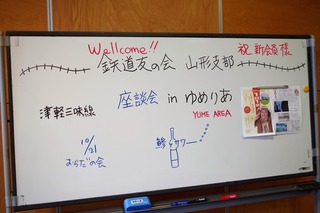 Wellcome!!
鉄道友の会 山形支部
祝 新会員様
座談会 in ゆめりあ
YUME AREA
津軽三味線
10/21
むらだの会
鯵ヶサワー